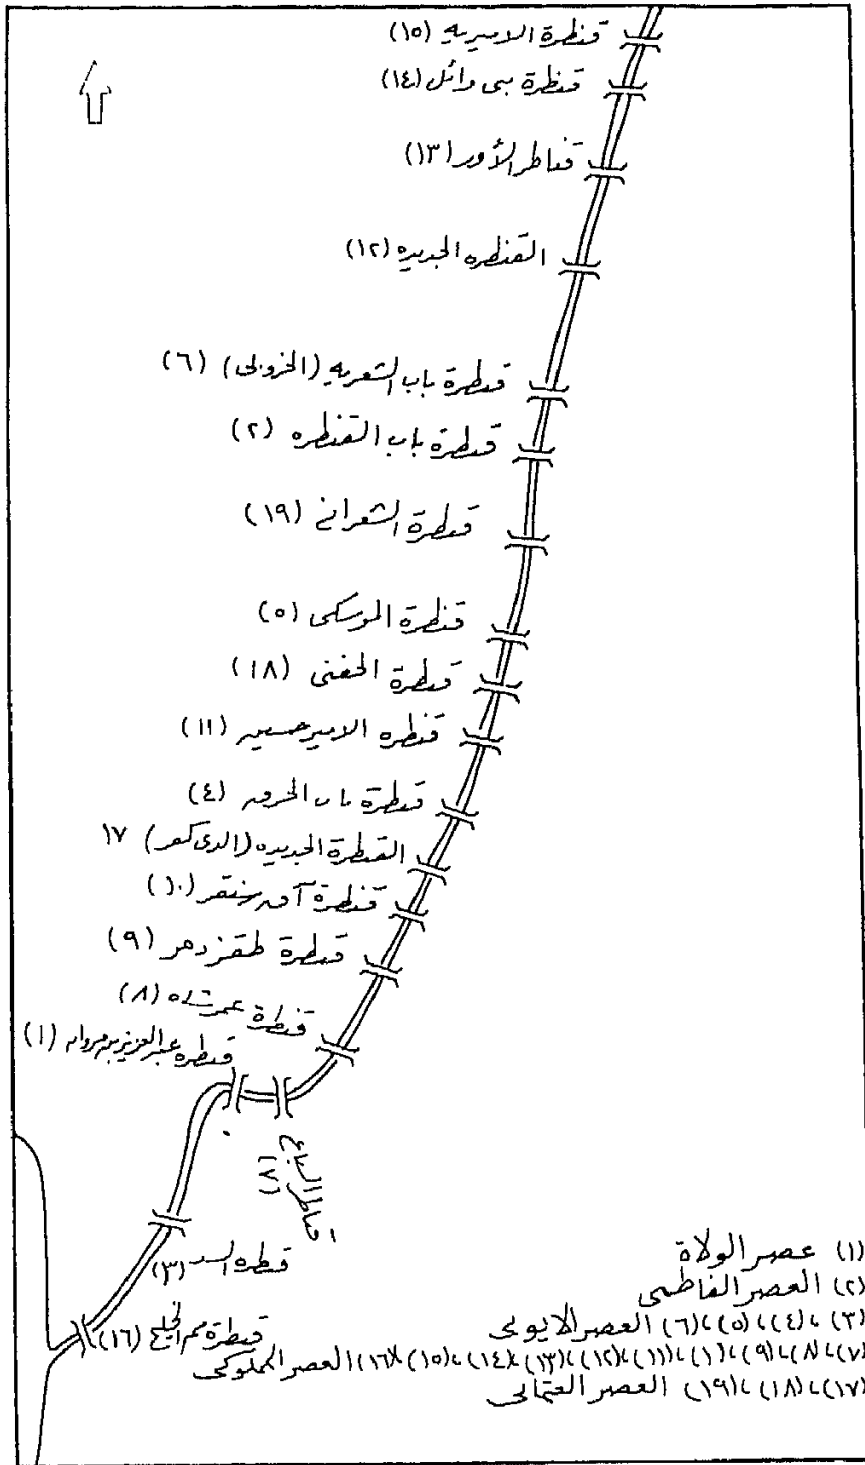 قنطرة الاميريه (١٥)
قنطرة بنى وائل (١٤)
قناطر الأوز (١٣)
القنطره الجديده (١٢)
قنطرة باب الشعريه (الخروبى) (٦)
قنطرة باب القنطره (٢)
قنطرة الشعرانى (١٩)
قنطرة الموسكى (٥)
قنطرة الحفنى (١٨)
قنطره الامير حسين (١١)
قنطرة باب الخرق (٤)
القنطرة الجديده (الدى كفر) ١٧
قنطرة آق سنقر (١٠)
قنطرة طقزدمر (٩)
قنطرة عمر شاه (٨)
قنطره عبد العزيز بن مروان (١)
قناطر السباع (٧)
قنطره السد (٣)
قنطرة فم الخليج (١٦)
(١) عصر الولاة
(٢) العصر الفاطمى
(٣)،(٤)،(٥)،(٦) العصر الايوبى
(٧)،(٨)،(٩)،(١٠)،(١١)،(١٢)،(١٣)،(١٤)،(١٥)،(١٦) العصر المملوكى
(١٧)،(١٨)،(١٩) العصر العثمانى